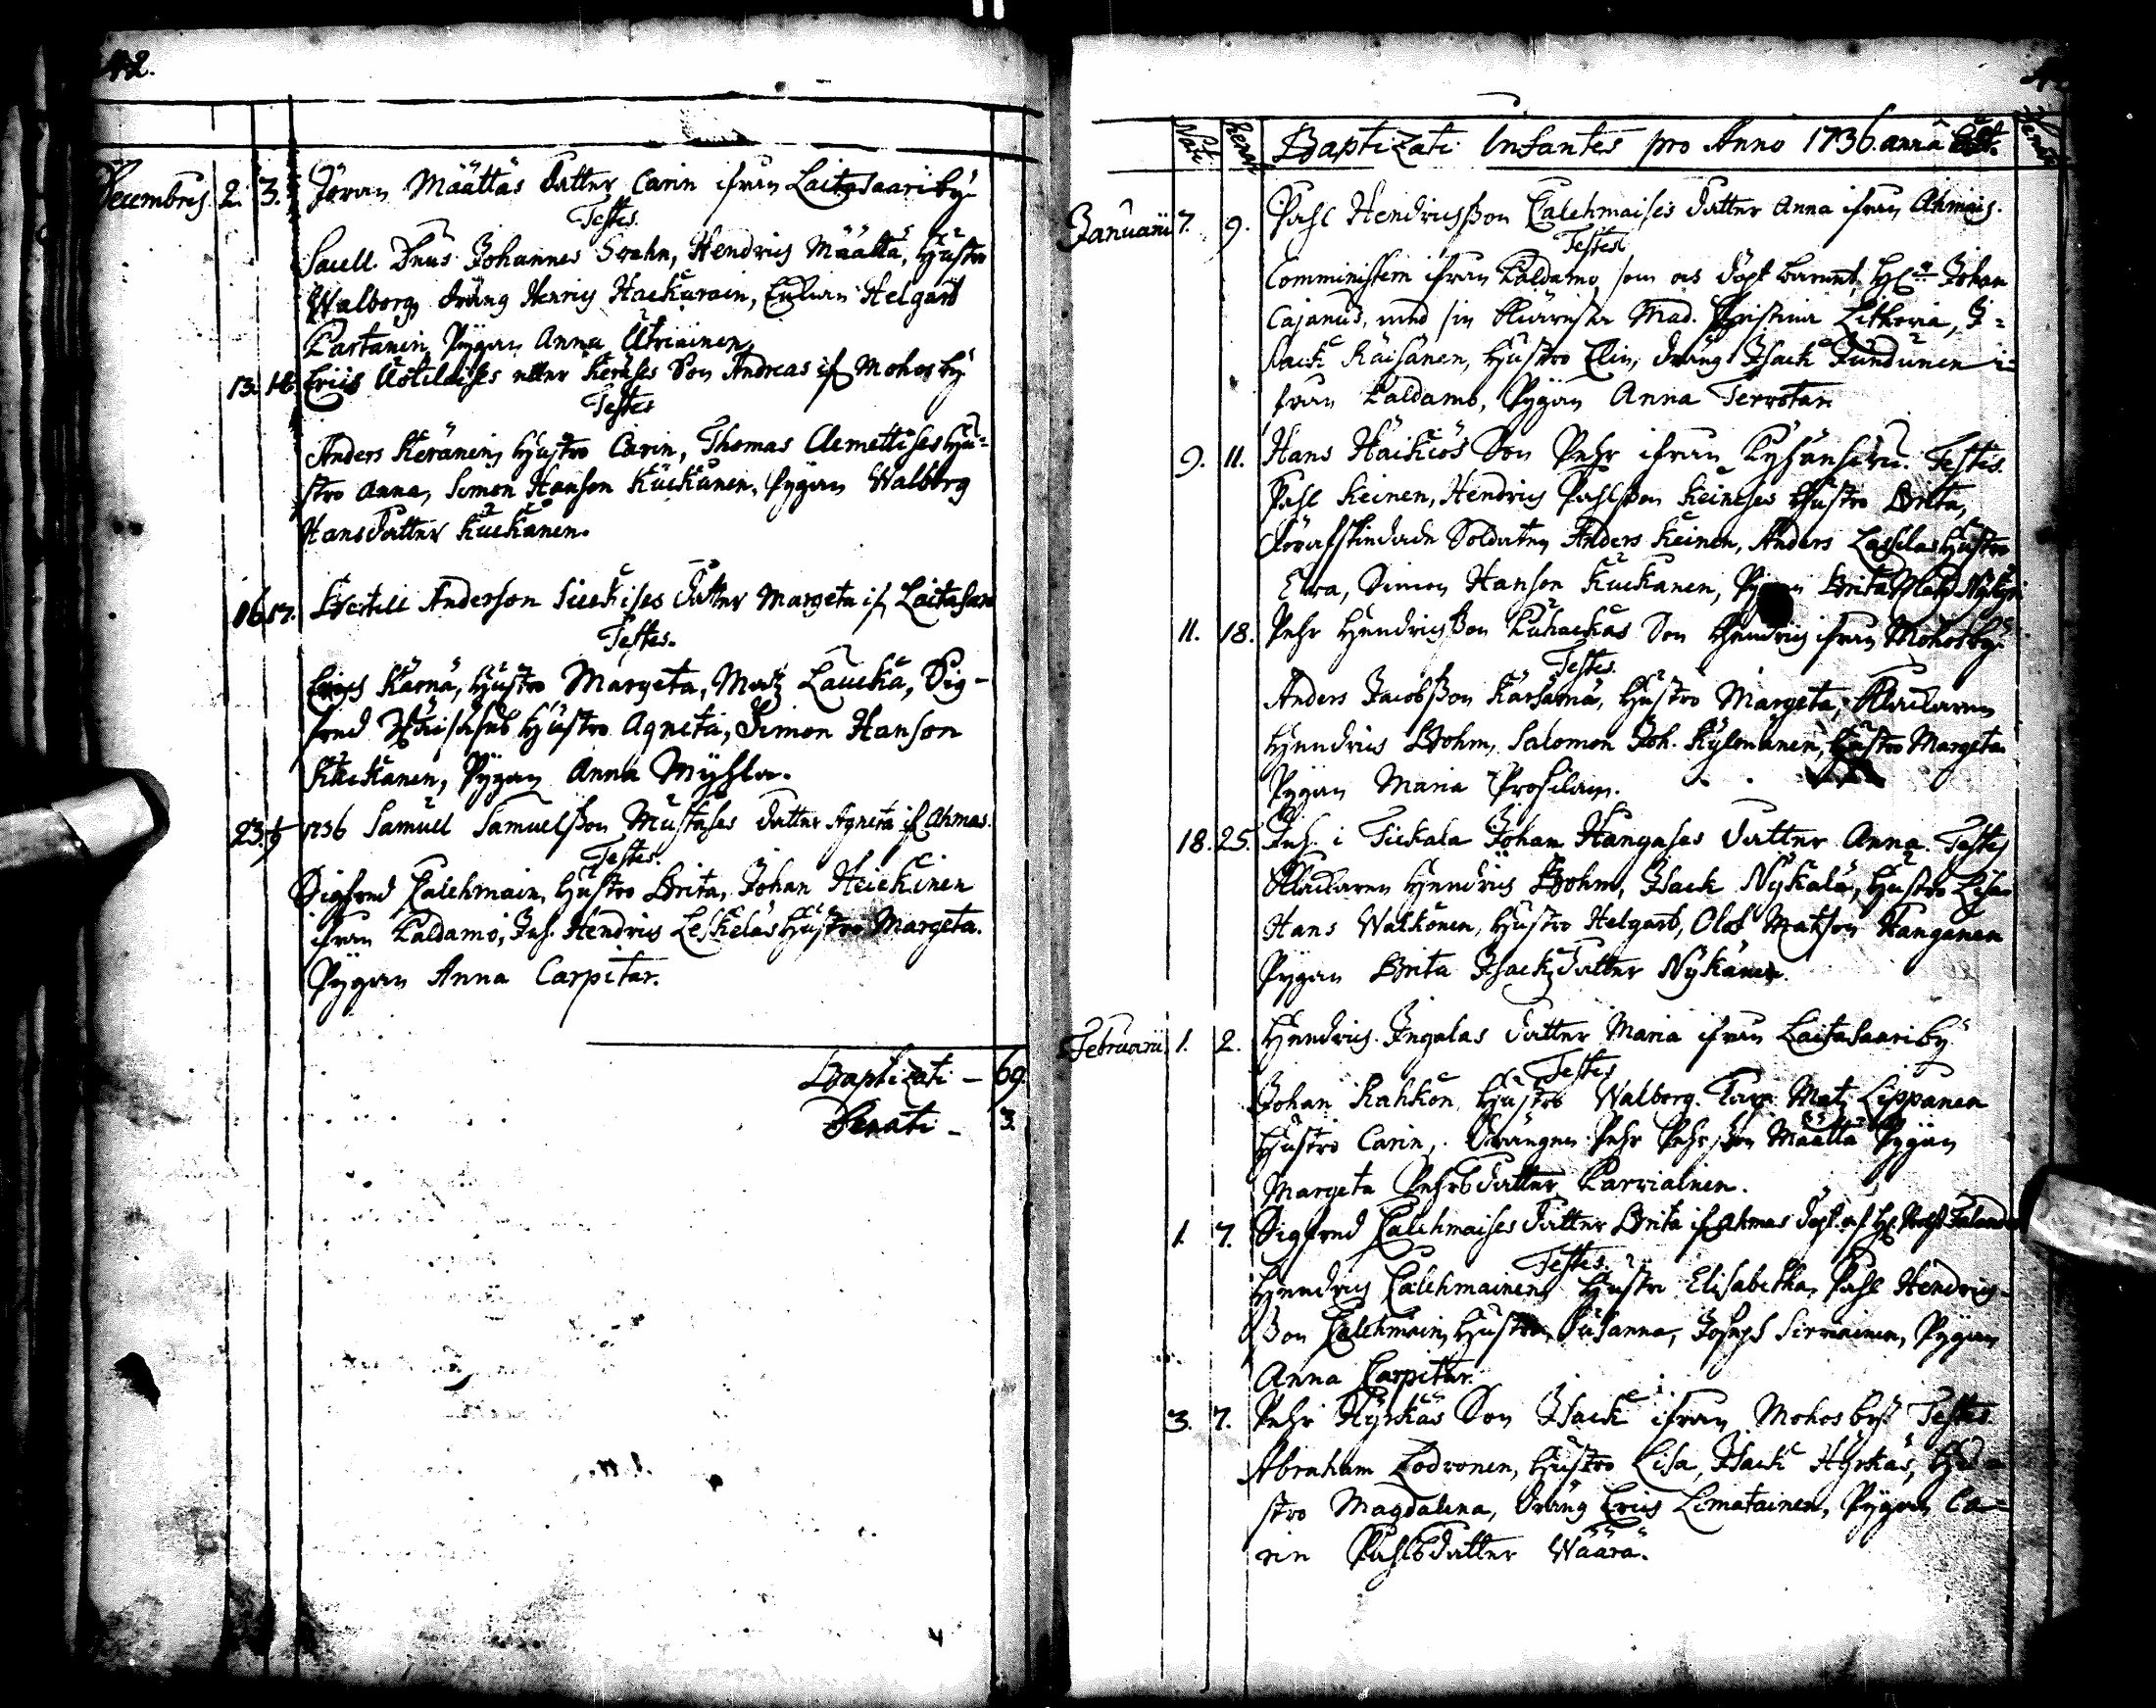 42.
Decembris. 2. 3. Jöran Määttäs datter Carin ifrån Laitasaari by
Testes.
Sacell. Dnus Johannes Svahn, Hendric Määttä, Hustro
Walborg, dräng Henric Hackarain, Enkian Helgard
Partanin, Pygan Anna Utriainen.
13. 14. Eric Uotilaises eller Keräses Son Andreas if. Mohos by
Testes
Anders Keränen, Hustro Carin, Thomas Clemettises Hu-
stro Anna, Simon Hanson Kuckanen, Pygan Walborg
Hansdatter Kuckanen.
16. 17. Bertill Anderson Suckises datter Margeta if. Laitasari
Testes.
Erich Kärnä, Hustro Margeta, Matz Laucka, Sig-
fred Hustro Agneta, Simon Hanson
Kuckanen, Pygan Anna Myhla.
23. 1736 Samuel Samuelsson Mustases datter Agneta if. Ahmas.
Testes.
Sigfred Calehmain, Hustro Brita, Johan Heickinen
ifrån Paldamo, Inh. Hendric Leskeläs Hustro Margeta.
Pygan Anna Carpitar.
Baptizati - 69.
Denati - 3.
Nati Renati Baptizati Infantes pro Anno 1736. anna
Januarii 7. 9. Påhl Hendricsson Calehmaises datter Anna ifrån Ahmas.
Testes
Comministern ifrån Paldamo, som ock döpt barnet, Johan
Cajanus, med sin Mad. Christina Lithovia, I-
sack Räisänen, Hustro Elin, dräng Isack Tundunen i-
från Paldamo, Pygan Anna Tervotar
9. 11. Hans Häikiös Son Pehr ifrån Testes.
Påhl Keinen, Hendric Påhlsson Keineses Hustro Brita,
Soldaten Anders Keinen, Anders Lassilas Hustro
Elra, Simon Hanson Kuckanen, Pygan Brita
11. 18. Pehr Hendricsson Son Hendric ifrån Mohos by.
Testes.
Anders Jacobsson Hustro Margeta, Klackaren
Hendric Bohm, Salomon Joh. Kylmänen, Hustro Margeta
Pygan Maria
18. 25. Inh. i Tickala Johan Kangases datter Anna. Testes
Klackaren Hendric Bohm, Isack Nykälä, Hustro Lisa
Hans Walkonen, Hustro Helgard, Olof Matson Kanganen
Pygan Brita Isacksdatter Nykänen.
Februarii 1. 2. Hendric Ingalas datter Maria ifrån Laitasaari by
Testes
Johan Rahkon, Hustro Walborg. Matz Lippanen
Hustro Carin, Drängen Pehr Pehrsson Määttä Pygan
Margeta Pehrsdatter Karvialnen.
1. 7. Sigfred Calehmaises datter Brita if. Ahmas döpt af
Testes.
Hendric Calehmainen, Hustro Elisabetha, Påhl Hendrics-
son Calehmain, Hustro Susanna, Joseph Pygan
Anna Carpitar.
3. 7. Pehr Hyrkäs Son Isack ifrån Mohos by. Testes
Abraham Lodvonen, Hustro Lisa, Isack Hyrkäs, Hu-
stro Magdalena, Dräng Eric Limatainen, Pygan Ca-
rin Påhlsdatter Wäära.